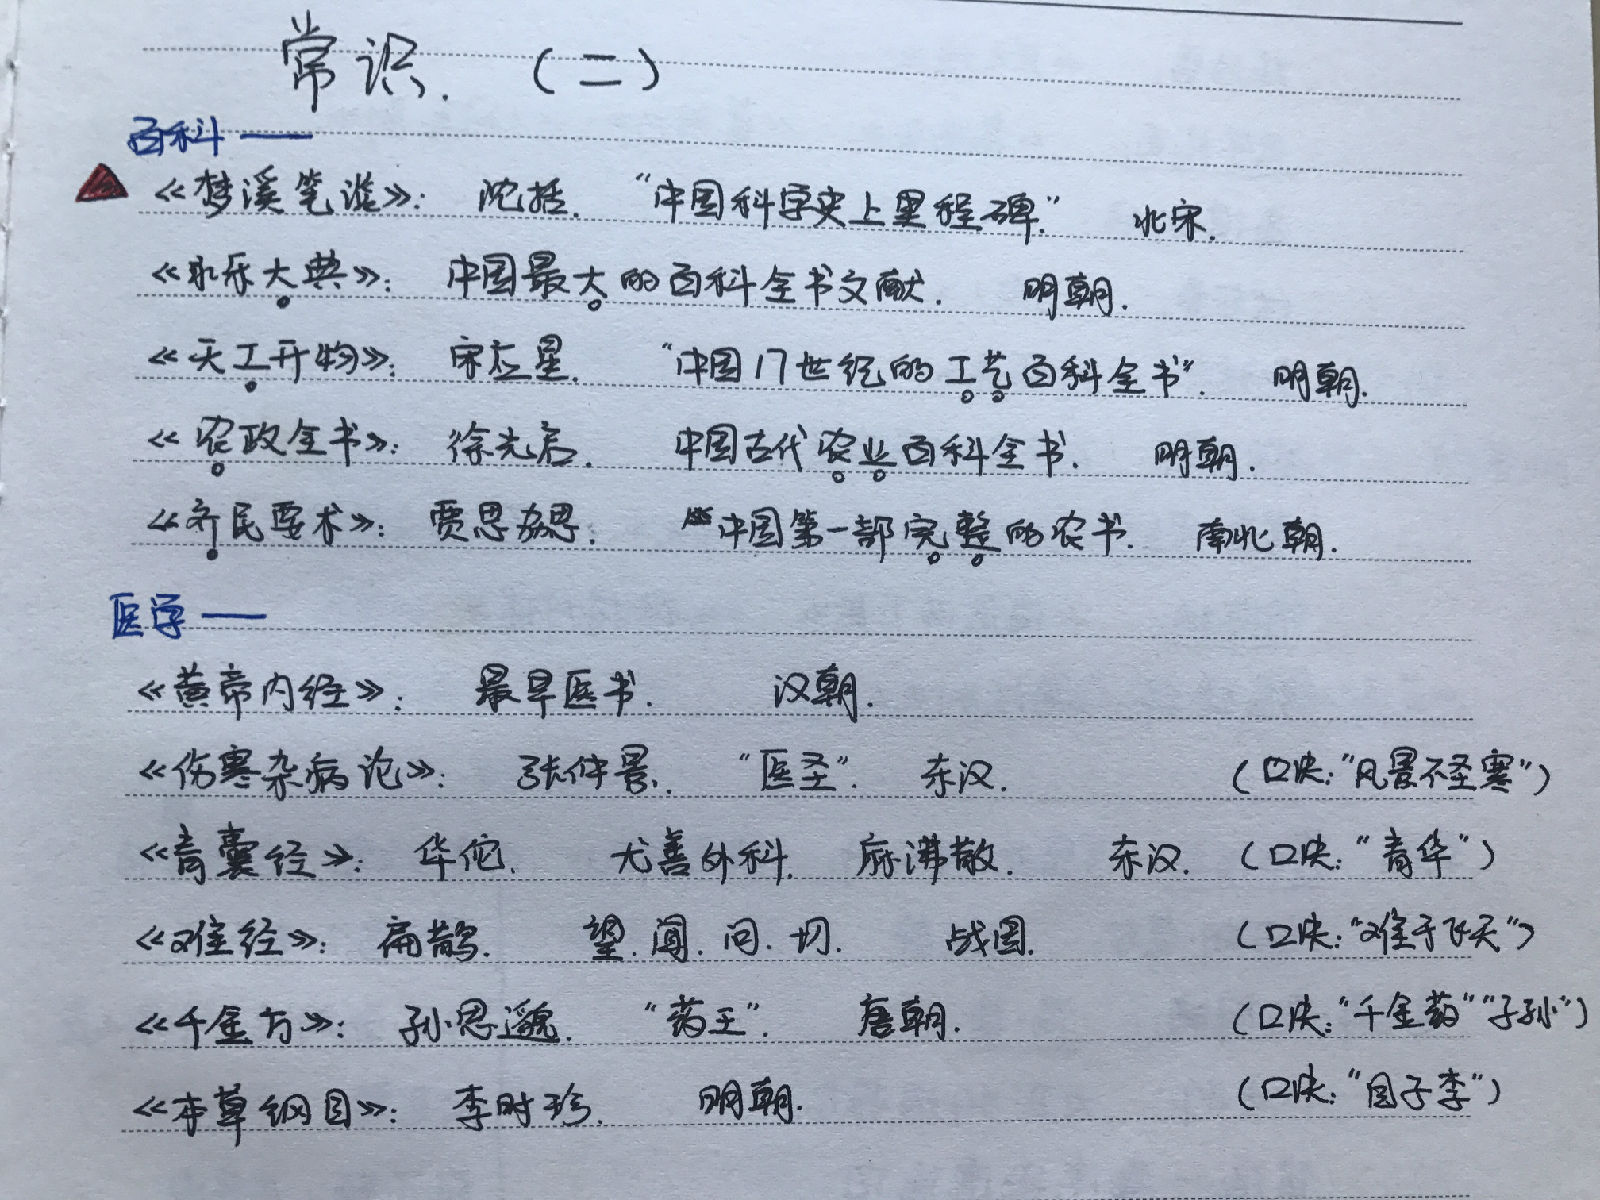 常识.（二）
百科——
《梦溪笔谈》: 沈括. “中国科学史上里程碑.” 北宋.
《永乐大典》: 中国最大的百科全书文献. 明朝.
《天工开物》: 宋应星. “中国17世纪的工艺百科全书”. 明朝.
《农政全书》: 徐光启. 中国古代农业百科全书. 明朝.
《齐民要术》: 贾思勰. 中国第一部完整的农书. 南北朝.
医学——
《黄帝内经》: 最早医书. 汉朝.
《伤寒杂病论》: 张仲景. “医圣”. 东汉. (口诀:“风景不圣寒”)
《青囊经》: 华佗. 尤善外科. 麻沸散. 东汉. (口诀:“青华”)
《难经》: 扁鹊. 望.闻.问.切. 战国. (口诀:“难于飞天”)
《千金方》: 孙思邈. “药王”. 唐朝. (口诀:“千金药”“子孙”)
《本草纲目》: 李时珍. 明朝. (口诀:“目子李”)